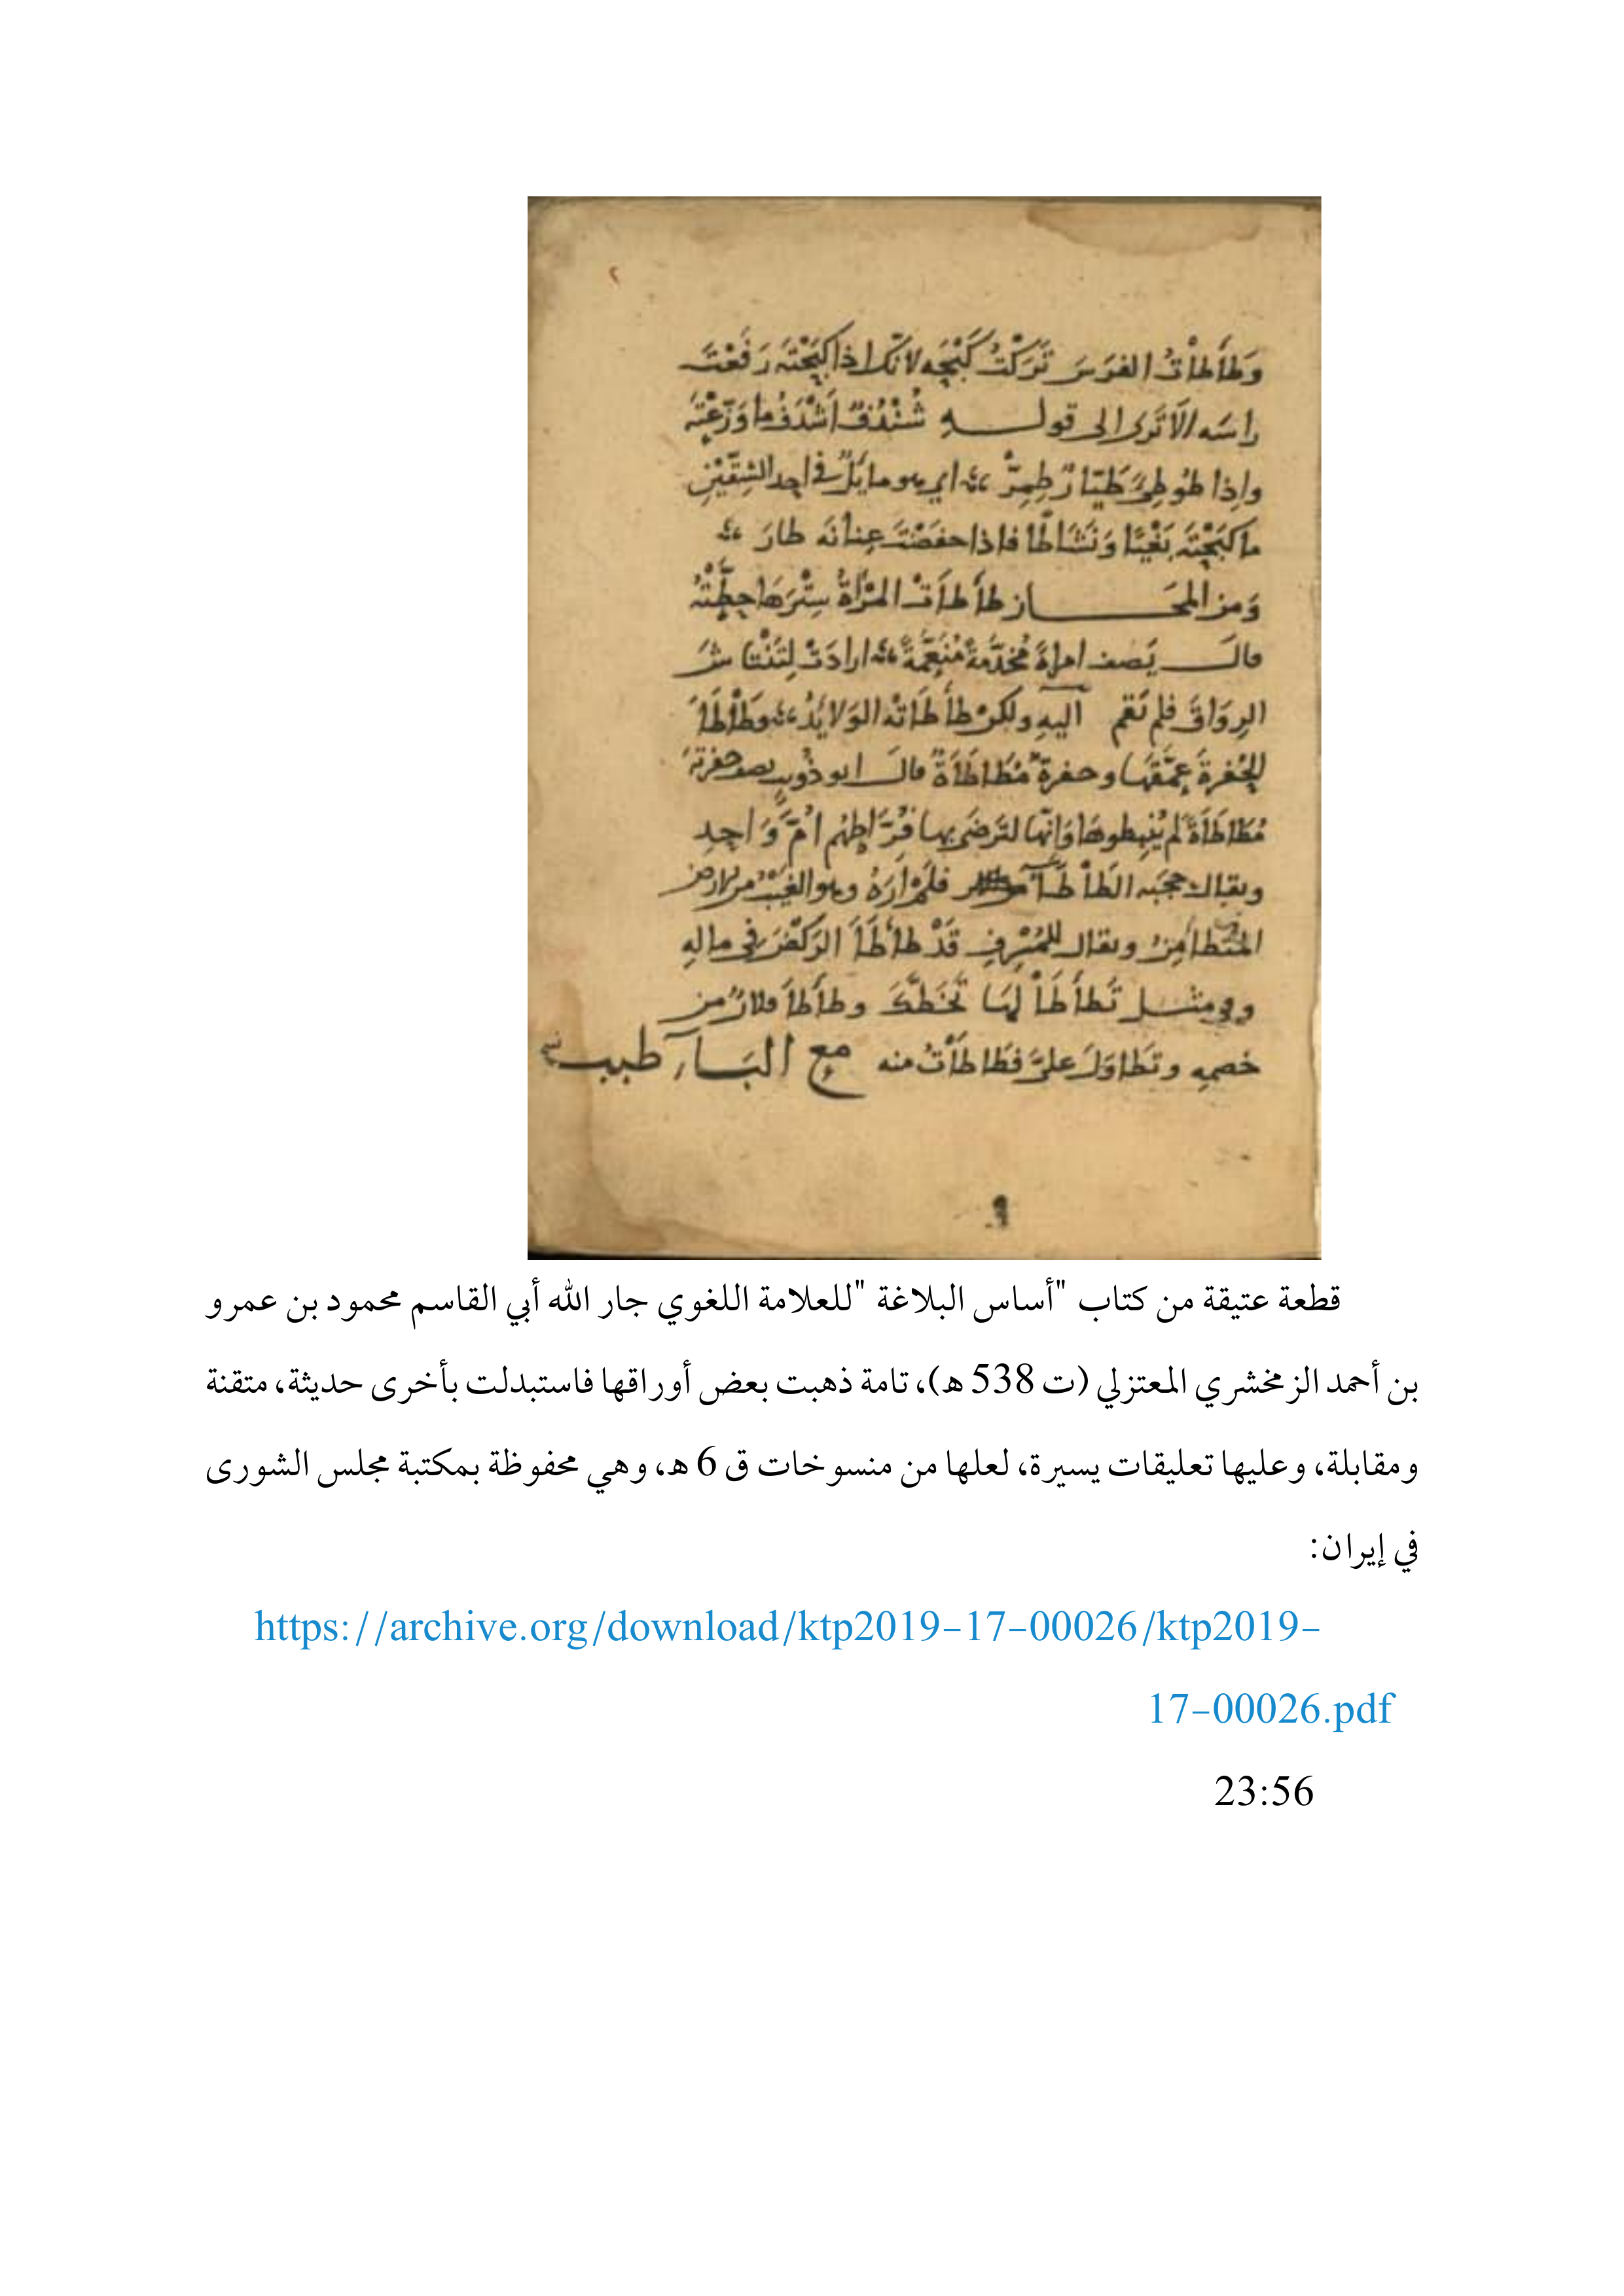 ٢
وَطَأْطَأْتُ الفَرَسَ تَرَكْتُ كَبْحَه لانّك اذا كَبَحْتَه رَفَعْتَ
راسَه الا تَرَى الى قولـــه شُنْدُفٌ اَشْدَفُ ما وَزَّعْتَهُ
واِذا طُوطِئَ طَيّارٌ طِمِرٌّ اي هو مايلٌ في احد الشِقَّيْنِ
ما كَبَحْتَه بَغْيًا وَنَشَاطًا فاذا خفَضْتَ عِنانَه طارَ
وَمن المجَـــاز طَأْطَأَتْ المَرْأةُ سِتْرَهَا حطَّتْهُ
قالَ يَصف امراةً مُخَدَّمةً مُنَعَّمَةً ارادَتْ لِتَنْتاشَ
الرِوَاقَ فلم تَقم اليهِ ولكن طَأْطَأَتْه الوَلايدُ وطَأْطَأَ
الحُفرةَ عمَّقَها وحفرةٌ مُطَأْطَأَةٌ قالَ ابو ذُويبٍ يصف حفرتَهُ
مُطَأْطَأَةً لم يُنبِطوهَا وَانّها لتَرضَى بها فُرّاطُهم اُمَّ وَاحِدِ
ويقال حجَبَه الطَأْطَاءُ فلَمْ اَرَهُ وهو الغَيْبُ من الارض
المُتطامِنُ ويقال للمُسْرِفِ قَدْ طَأْطَأَ الرَكْضَ في مالِهِ
وفي مثـل تَطَأْطَأْ لهَا تَخَطَّكَ وطَأْطَأَ فلانٌ من
خصمِه وتَطَاوَلَ عليَّ فتَطَأْطَأْتُ منه مع البَـاء طبب
قطعة عتيقة من كتاب "أساس البلاغة "للعلامة اللغوي جار الله أبي القاسم محمود بن عمرو
بن أحمد الزمخشري المعتزلي (ت 538 هـ)، تامة ذهبت بعض أوراقها فاستبدلت بأخرى حديثة، متقنة
ومقابلة، وعليها تعليقات يسيرة، لعلها من منسوخات ق 6 هـ، وهي محفوظة بمكتبة مجلس الشورى
في إيران:
https://archive.org/download/ktp2019-17-00026/ktp2019-
17-00026.pdf
23:56